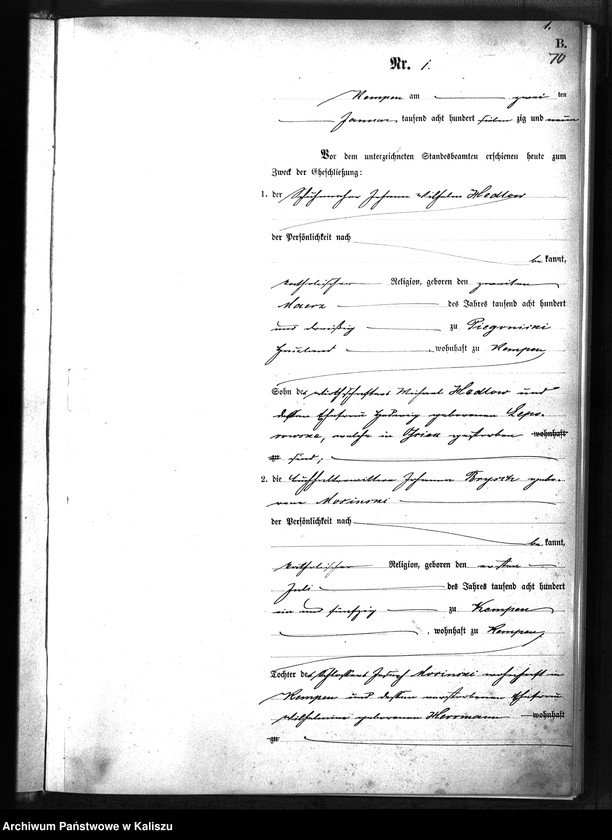 1.
B.
70
Nr. 1.
Kempen am zwei ten
Januar tausend acht hundert sieben zig und neun
Vor dem unterzeichneten Standesbeamten erschienen heute zum
Zweck der Eheschließung:
1. der Schuhmacher Johann Wilhelm Hedlow
der Persönlichkeit nach
be kannt,
katholischer Religion, geboren den zweiten
Maerz des Jahres tausend acht hundert
und dreißig zu
Hauland , wohnhaft zu Kempen
Sohn des Wirthschafters Michael Hedlow und
dessen Ehefrau Hedwig geborenen
welche in gestorben wohnhaft
zu sind;
2. die Johanna gebo-
rene Morinski
der Persönlichkeit nach
be kannt,
katholischer Religion, geboren den ersten
Juli des Jahres tausend acht hundert
ein und fünfzig zu Kempen
, wohnhaft zu Kempen
Tochter des Schlossers Joseph Morinski wohnhaft in
Kempen und dessen verstorbenen Ehefrau
Wilhelmine geborenen Herrmann wohnhaft
zu
Archiwum Państwowe w Kaliszu